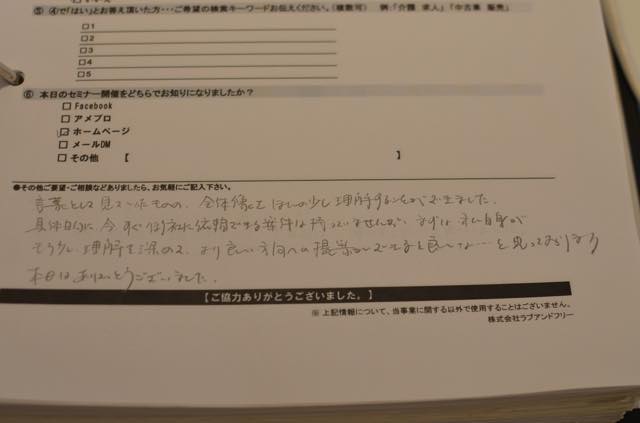 ⑤ ④で「はい」とお答え頂いた方・・・ご希望の検索キーワードお伝えください。（複数可） 例：「介護 求人」「中古車 販売」
□1
□2
□3
□4
□5
⑥ 本日のセミナー開催をどちらでお知りになりましたか？
□ Facebook
□ アメブロ
☑ ホームページ
□ メールDM
□ その他 【 】
●その他ご要望・ご相談などありましたら、お気軽にご記入下さい。
言葉として見ていたものの、全体像としてほんの少し理解することができました。
具体的に今すぐ御社に依頼できる案件は持っていませんが、まずは私自身が
もう少し理解を深めて、より良い方向への提案ができると良いな…と思っております
本日はありがとうございました。
【ご協力ありがとうございました。】
※ 上記情報について、当事業に関する以外で使用することはございません。
株式会社ラブアンドフリー